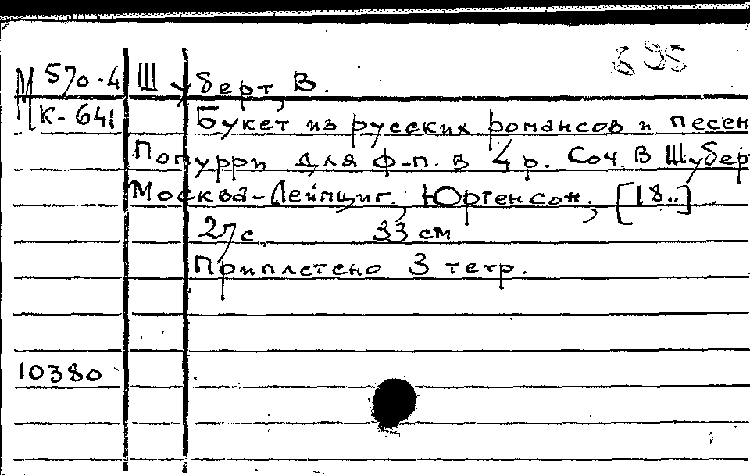 695
М 570-4 Шуберт, В.
К-641 Букет из русских романсов и песен
Попурри для ф-п. в 4 р. Соч. В Шубер
Москва-Лейпциг, Юргенсон, [18..]
27с. 33 см
Приплетено 3 тетр.
10380